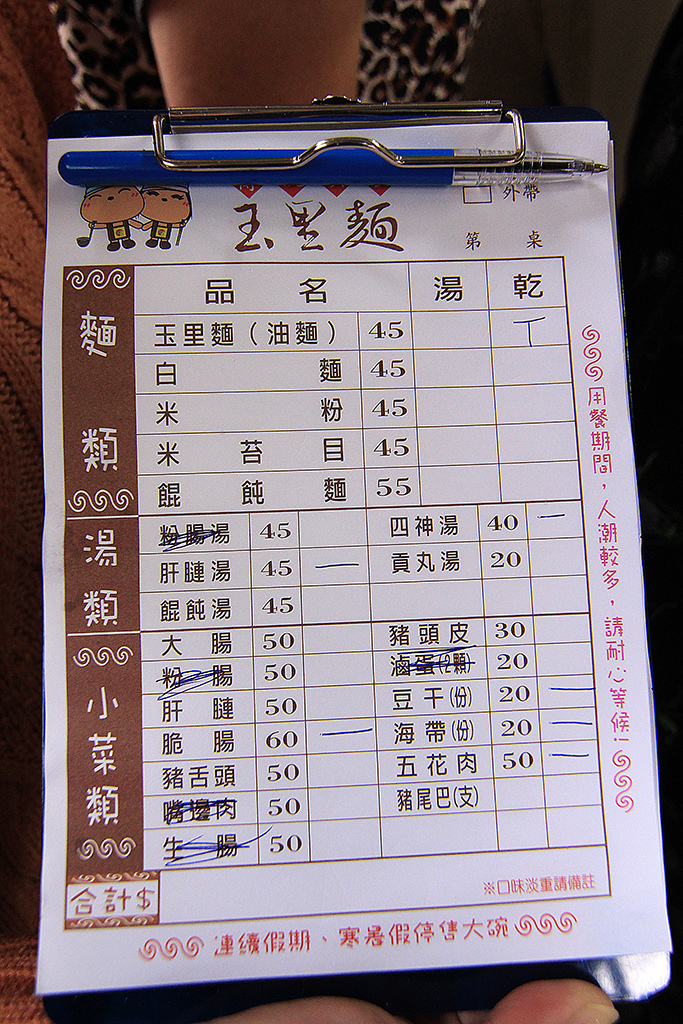 外帶
玉里麵
第 桌
品名 湯 乾
麵類
玉里麵（油麵） 45 丅
白麵 45
米粉 45
米苔目 45
餛飩麵 55
湯類
粉腸湯 45 四神湯 40 一
肝膁湯 45 一 貢丸湯 20
餛飩湯 45
小菜類
大腸 50 豬頭皮 30
粉腸 50 滷蛋(2顆) 20
肝膁 50 豆干(份) 20 一
脆腸 60 一 海帶(份) 20 一
豬舌頭 50 五花肉 50 一
嘴邊肉 50 豬尾巴(支)
生腸 50
合計$
※口味淡重請備註
用餐期間，人潮較多，請耐心等候!
連續假期、寒暑假停售大碗